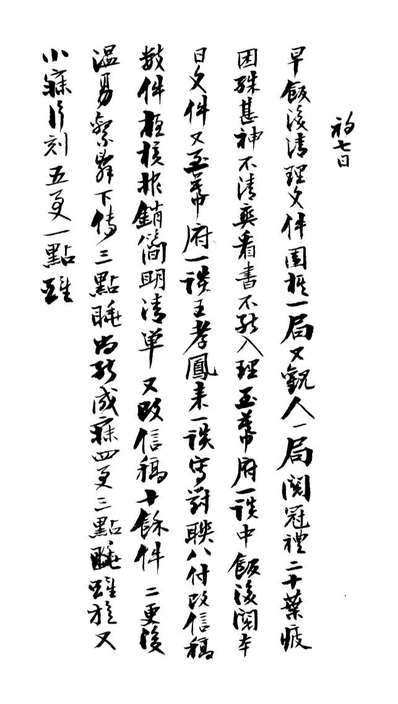 初七日
早飯後清理文件圍棋一局又觀人一局閱冠禮二十葉疲
困殊甚神不清爽看書不能入理至幕府一談中飯後閱本
日文件又至幕府一談王孝鳳來一談寫對聯八付改信稿
數件核批札報銷簡明清單又改信稿十餘件二更後
溫易繫辭下傳三點睡尚能成寐四更三點睡醒旋又
小寐片刻五更一點醒